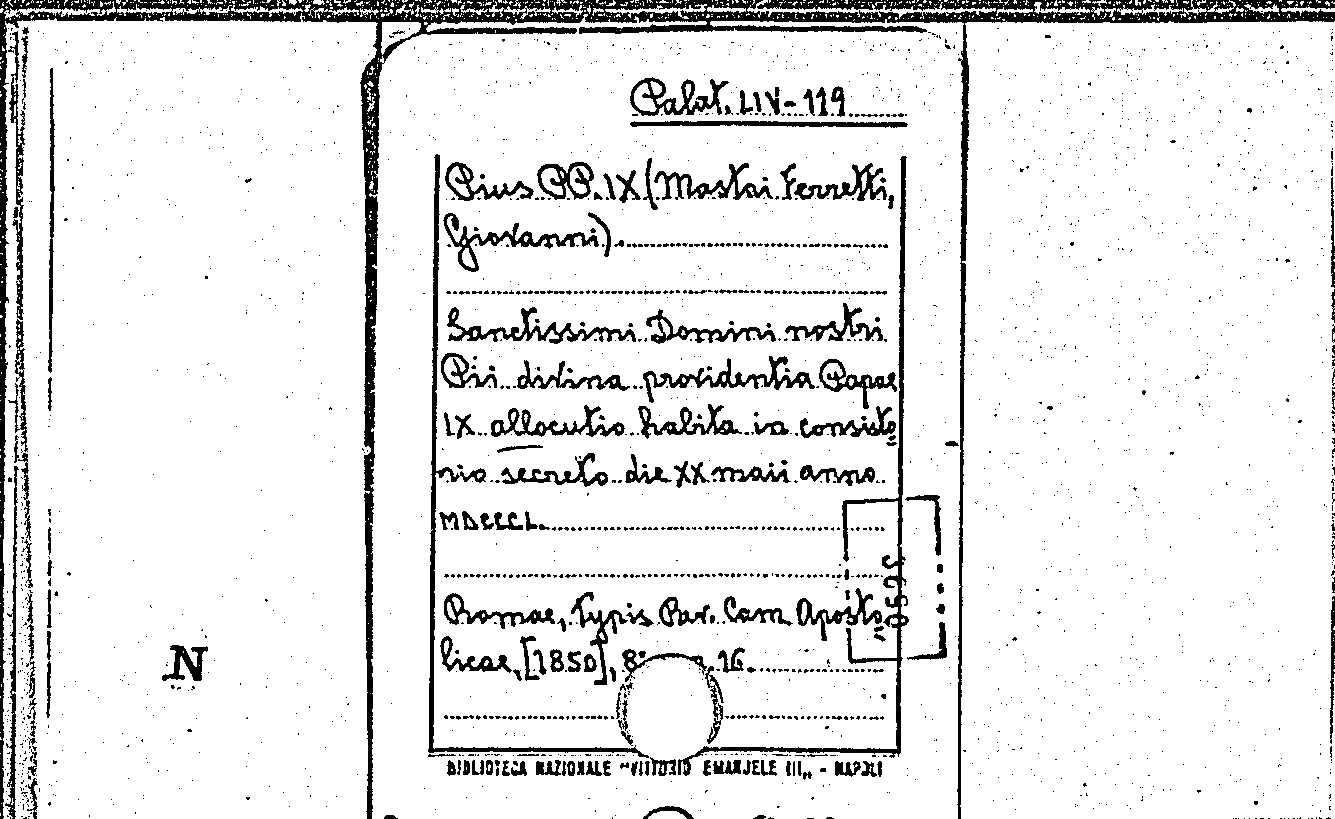 Palat. LIV-119
Pius PP. IX (Mastai Ferretti,
Giovanni).
Sanctissimi Domini nostri
Pii divina providentia Papae
IX allocutio habita in consisto
rio secreto die XX maii anno
MDCCCL.
Romae, Typis Rev. Cam. Aposto
licae, [1850], 8° p. 16.
BIBLIOTECA NAZIONALE "VITTORIO EMANUELE III„ - NAPOLI
N